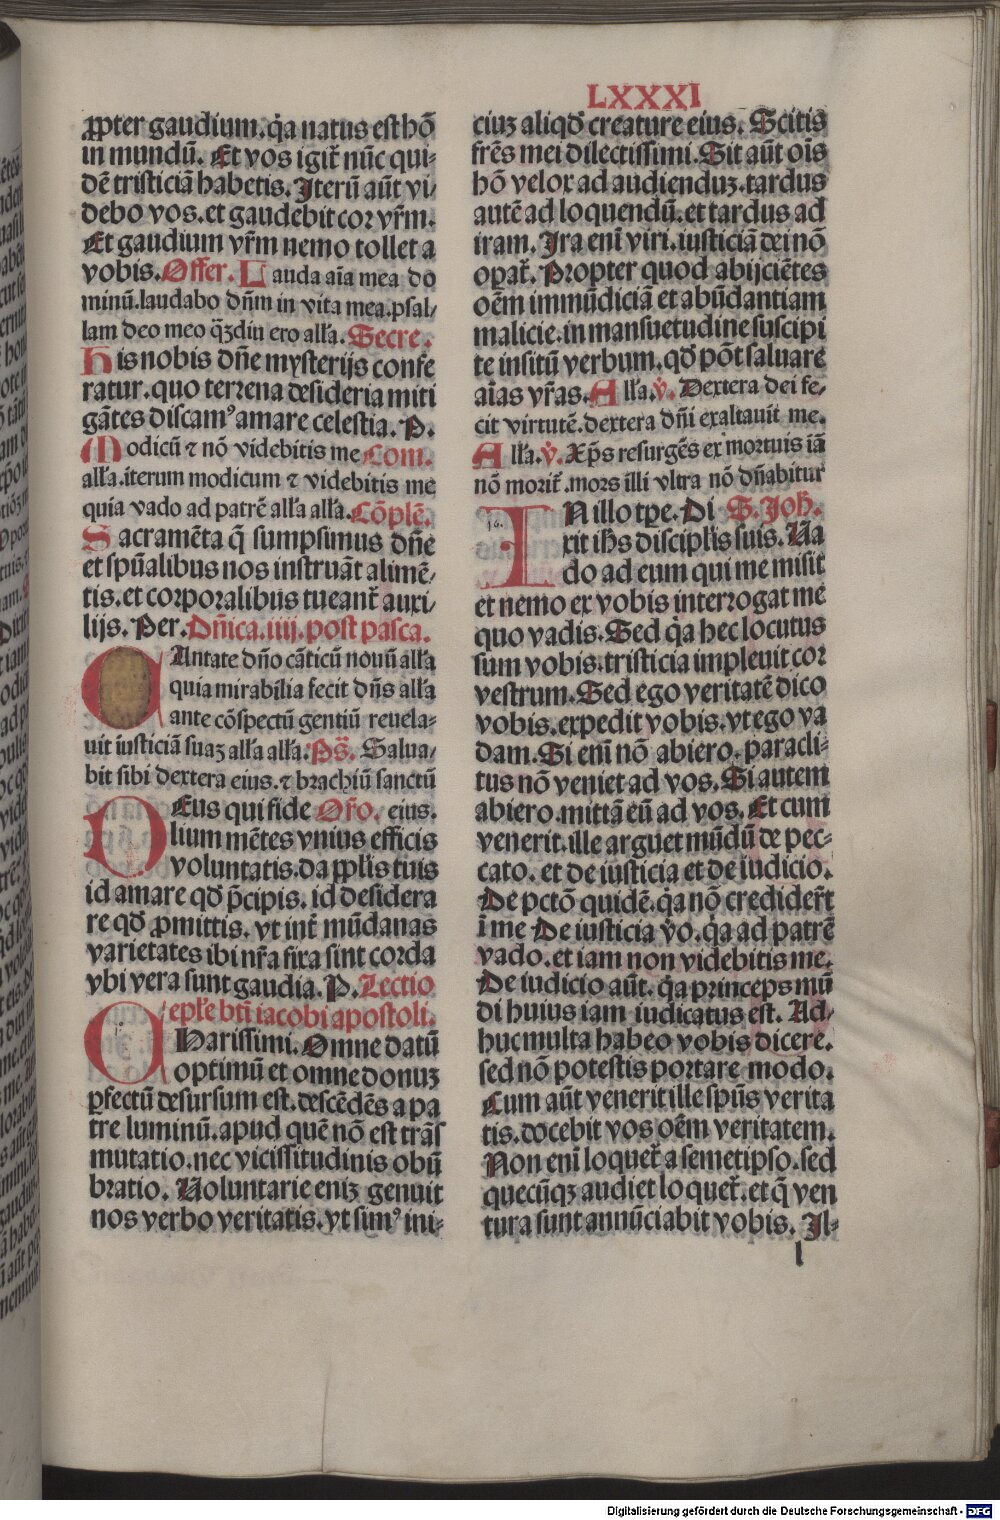 LXXXI
ꝓpter gaudium.q̃a natus est hõ
in mundũ. Et vos igit̃ nũc qui-
dẽ tristiciã habetis. Iterũ aũt vi-
debo vos.et gaudebit cor vr̃m.
Et gaudium vr̃m nemo tollet a
vobis. Offer. Lauda aĩa mea do
minũ.laudabo dñm in vita mea.psal-
lam deo meo q̃ꝫdiu ero alľa. Secre.
His nobis dñe mysterijs confe
ratur.quo terrena desideria miti
gãtes discamꝰ amare celestia. P.
Modicũ ⁊ nõ videbitis me Com.
alľa.iterum modicum ⁊ videbitis me
quia vado ad patrẽ alľa alľa. Cõplẽ.
Sacramẽta q̃ sumpsimus dñe
et spũalibus nos instruãt alimẽ-
tis.et corporalibus tueant̃ auxi-
lijs. Per. Dñica.iiij.post pasca.
CAntate dño cãticũ nouũ alľa
quia mirabilia fecit dñs alľa
ante cõspectũ gentiũ reuela-
uit iusticiã suaꝫ alľa alľa. Ps̃. Salua-
bit sibi dextera eius.⁊ brachiũ sanctũ
DEus qui fide Oŕo. eius.
lium mẽtes vnius efficis
voluntatis.da ꝓpľis tuis
id amare qď p̃cipis. id desidera
re qď ꝓmittis. vt int̃ mũdanas
varietates ibi nr̃a fixa sint corda
vbi vera sunt gaudia. P. Lectio
epľe bti iacobi apostoli.
CHarissimi. Omne datũ
optimũ et omne donuꝫ
ꝑfectũ desursum est. descẽdẽs a pa
tre luminũ.apud quẽ nõ est trãs
mutatio.nec vicissitudinis obũ
bratio. Uoluntarie eniꝫ genuit
nos verbo veritatis.vt simꝰ ini-
ciuꝫ aliqď creature eius. Scitis
fr̃es mei dilectissimi. Sit aũt oĩs
hõ velox ad audienduꝫ.tardus
autẽ ad loquendũ.et tardus ad
iram. Ira enĩ viri.iusticiã dei nõ
operat̃. Propter quod abijciẽtes
oẽm immũdiciã et abũdantiam
malicie.in mansuetudine suscipi
te insitũ verbum. qď põt saluare
aĩas vr̃as. Alľa. v̇. Dextera dei fe-
cit virtutẽ.dextera dñi exaltauit me.
Alľa. v̇. Xp̃s resurgẽs ex mortuis iã
nõ morit̃.mors illi vltra nõ dñabitur
IN illo tp̃e. Di S. Joh.
xit ihs̃ discipľis suis. Ua
do ad eum qui me misit
et nemo ex vobis interrogat me
quo vadis. Sed q̃a hec locutus
sum vobis.tristicia impleuit cor
vestrum. Sed ego veritatẽ dico
vobis.expedit vobis.vt ego va
dam. Si enĩ nõ abiero.paracli-
tus nõ veniet ad vos. Si autem
abiero.mittã eũ ad vos. Et cum
venerit.ille arguet mũdũ de pec-
cato. et de iusticia et de iudicio.
De pctõ quidẽ.q̃a nõ credidert̃
ĩ me De iusticia ṽo.q̃a ad patrẽ
vado.et iam non videbitis me.
De iudicio aũt. q̃a princeps mũ
di huius iam iudicatus est. Ad-
huc multa habeo vobis dicere.
sed nõ potestis portare modo.
Cum aũt venerit ille spũs verita
tis.docebit vos oẽm veritatem.
Non enĩ loquet̃ a semetipso.sed
quecũqꝫ audiet loquet̃.et q̃ ven
tura sunt annũciabit vobis. Il-
l
Digitalisierung gefördert durch die Deutsche Forschungsgemeinschaft - DFG